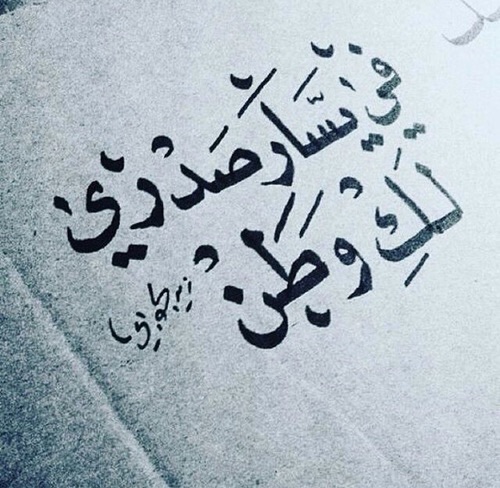 في يَسَّارَ صَدْري
لَكِ وَطَنْ